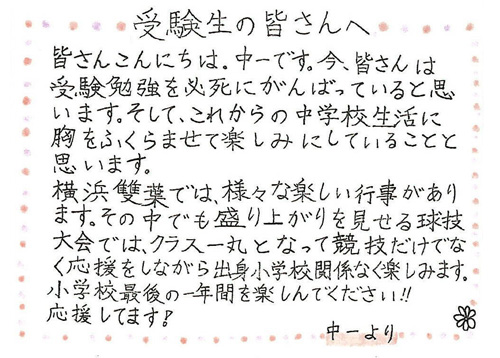 受験生の皆さんへ
皆さんこんにちは。中一です。今、皆さんは
受験勉強を必死にがんばっていると思
います。そして、これからの中学校生活に
胸をふくらませて楽しみにしていることと
思います。
横浜雙葉では、様々な楽しい行事があり
ます。その中でも盛り上がりを見せる球技
大会では、クラス一丸となって競技だけでな
く応援をしながら出身小学校関係なく楽しみます。
小学校最後の一年間を楽しんでください!!
応援してます!
中一より